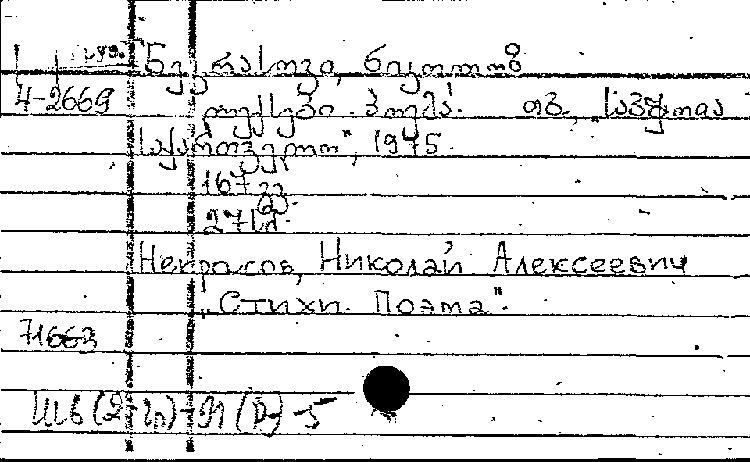 ნეკრასოვი, ნიკოლოზ
4-2669 ლექსები. პოემა. თბ., „საბჭოთა
საქართველო", 1975.
167 გვ.
Некрасов, Николай Алексеевич
„Стихи. Поэма".
71663